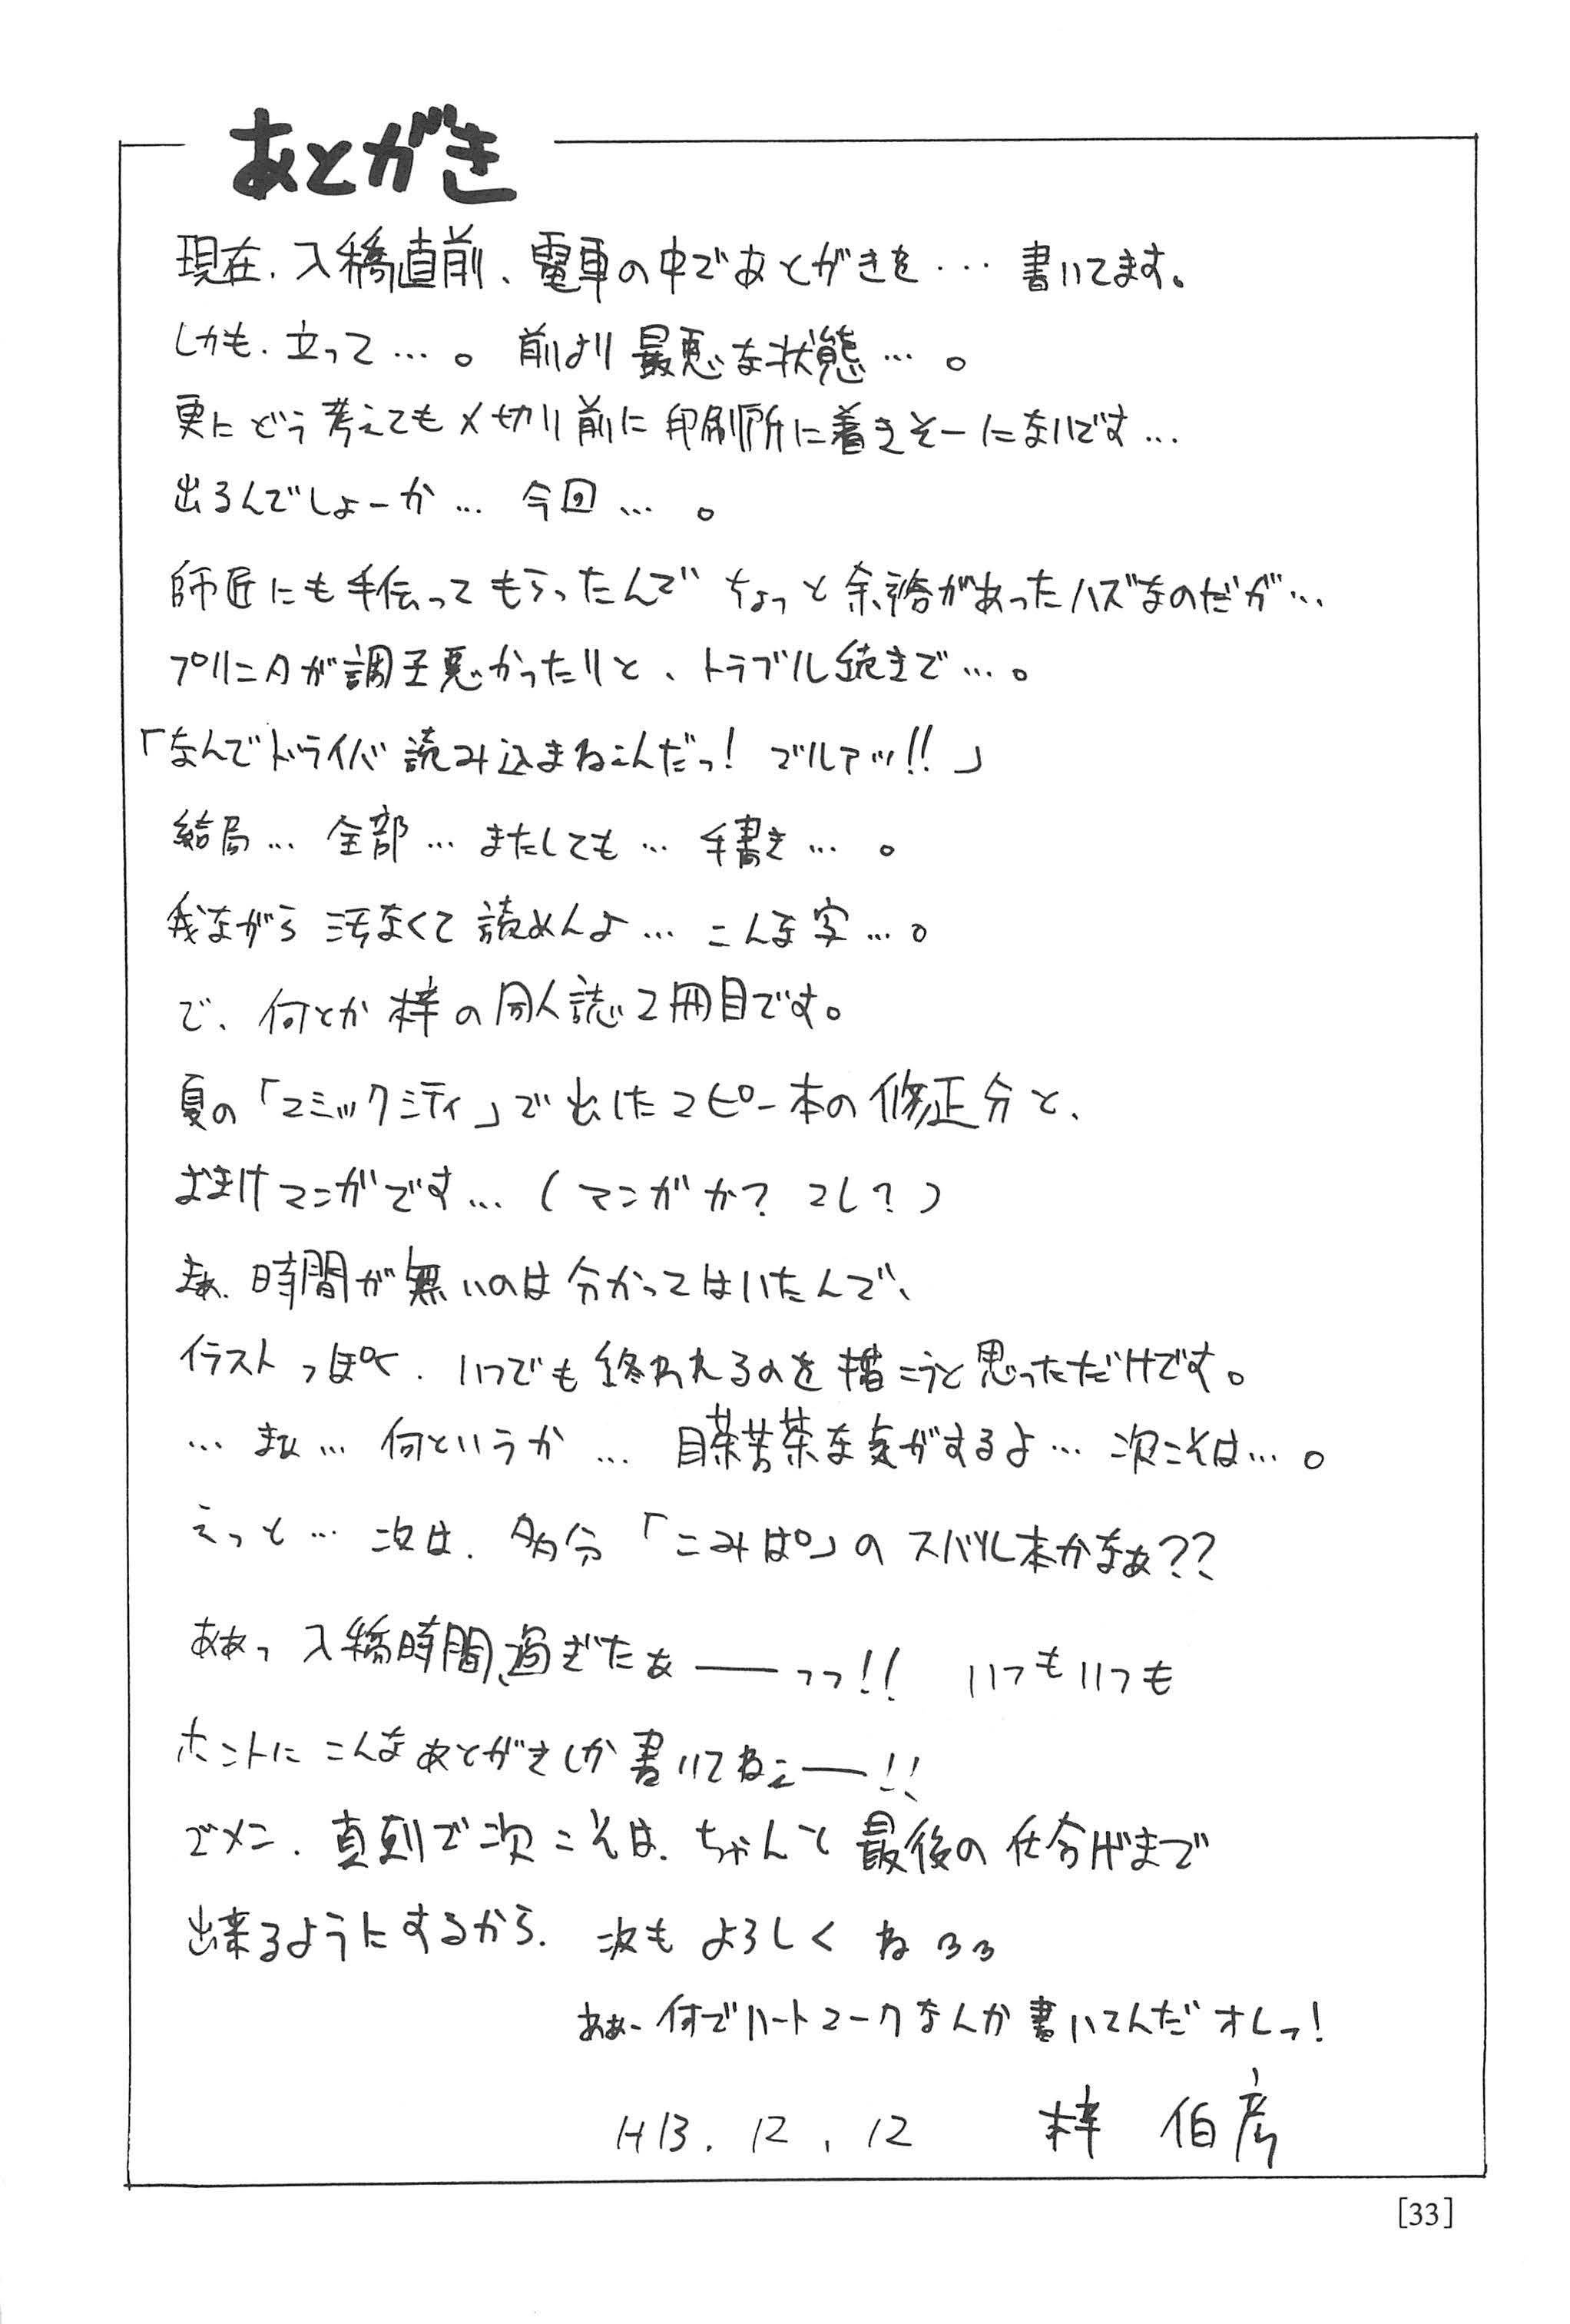 あとがき
現在、入稿直前、電車の中であとがきを… 書いてます。
しかも、立って…。 前より最悪な状態…。
更にどう考えても〆切り前に印刷所に着きそーにないです…
出るんでしょーか… 今回…。
師匠にも手伝ってもらったんで ちょっと余裕があったハズなのだが…
プリンタが調子悪かったりと、トラブル続きで…。
「なんでドライバ読み込まねェんだっ! ゴルァッ!!」
結局… 全部… またしても… 手書き…。
我ながら汚なくて読めんよ… こんな字…。
で、何とか梓の同人誌2冊目です。
夏の「コミックシティ」で出したコピー本の修正分と、
おまけマンガです…(マンガか? コレ?)
まぁ、時間が無いのは分かってはいたんで、
イラストっぽく、いつでも終われるのを描こうと思っただけです。
… まぁ… 何というか… 目茶苦茶な気がするよ… 次こそは…。
えっと… 次は、多分「こみパ」の スバル本かなぁ??
ああっ 入稿時間過ぎたぁーっっ!! いつもいつも
ホントに こんなあとがきしか書いてねぇー!!
ゴメン、真剣で次こそは、ちゃんと最後の仕分けまで
出来るようにするから、次もよろしくね
ああー何でハートマークなんか書いてんだオレっ!
H13.12.12 梓 伯彦
[33]